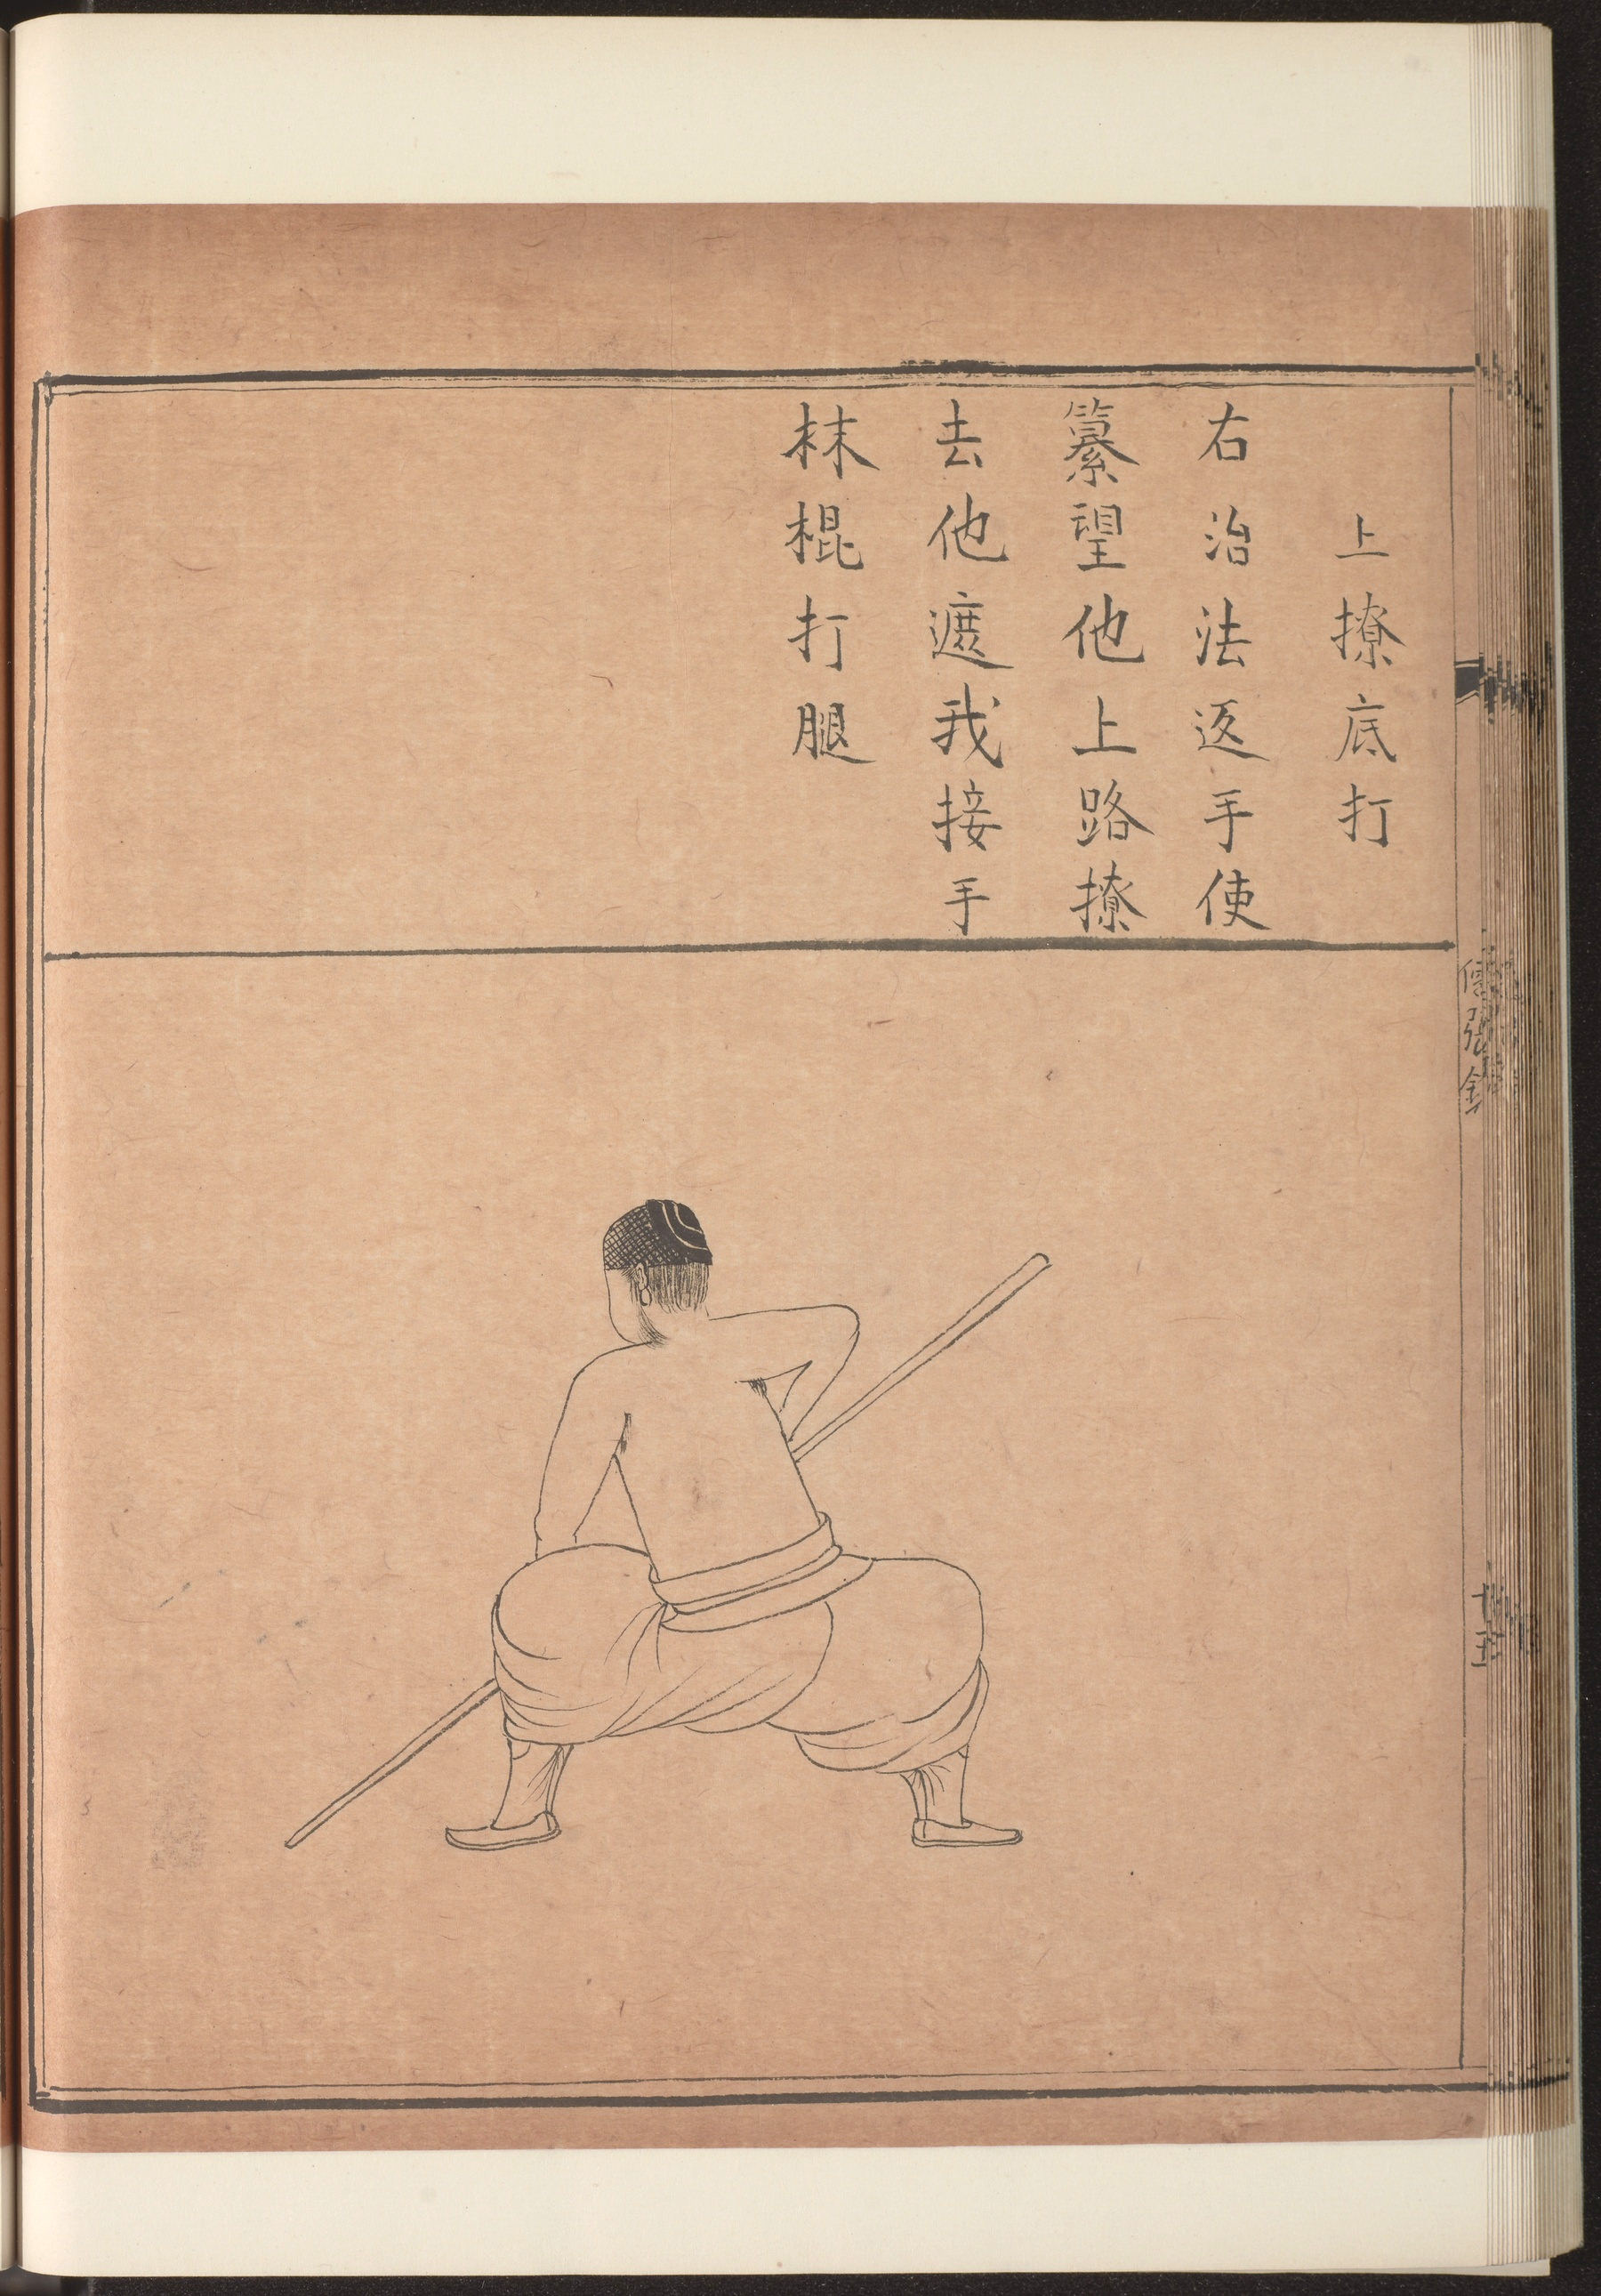 上撩底打
右治法返手使
纂望他上路撩
去他遮我接手
棍打腿